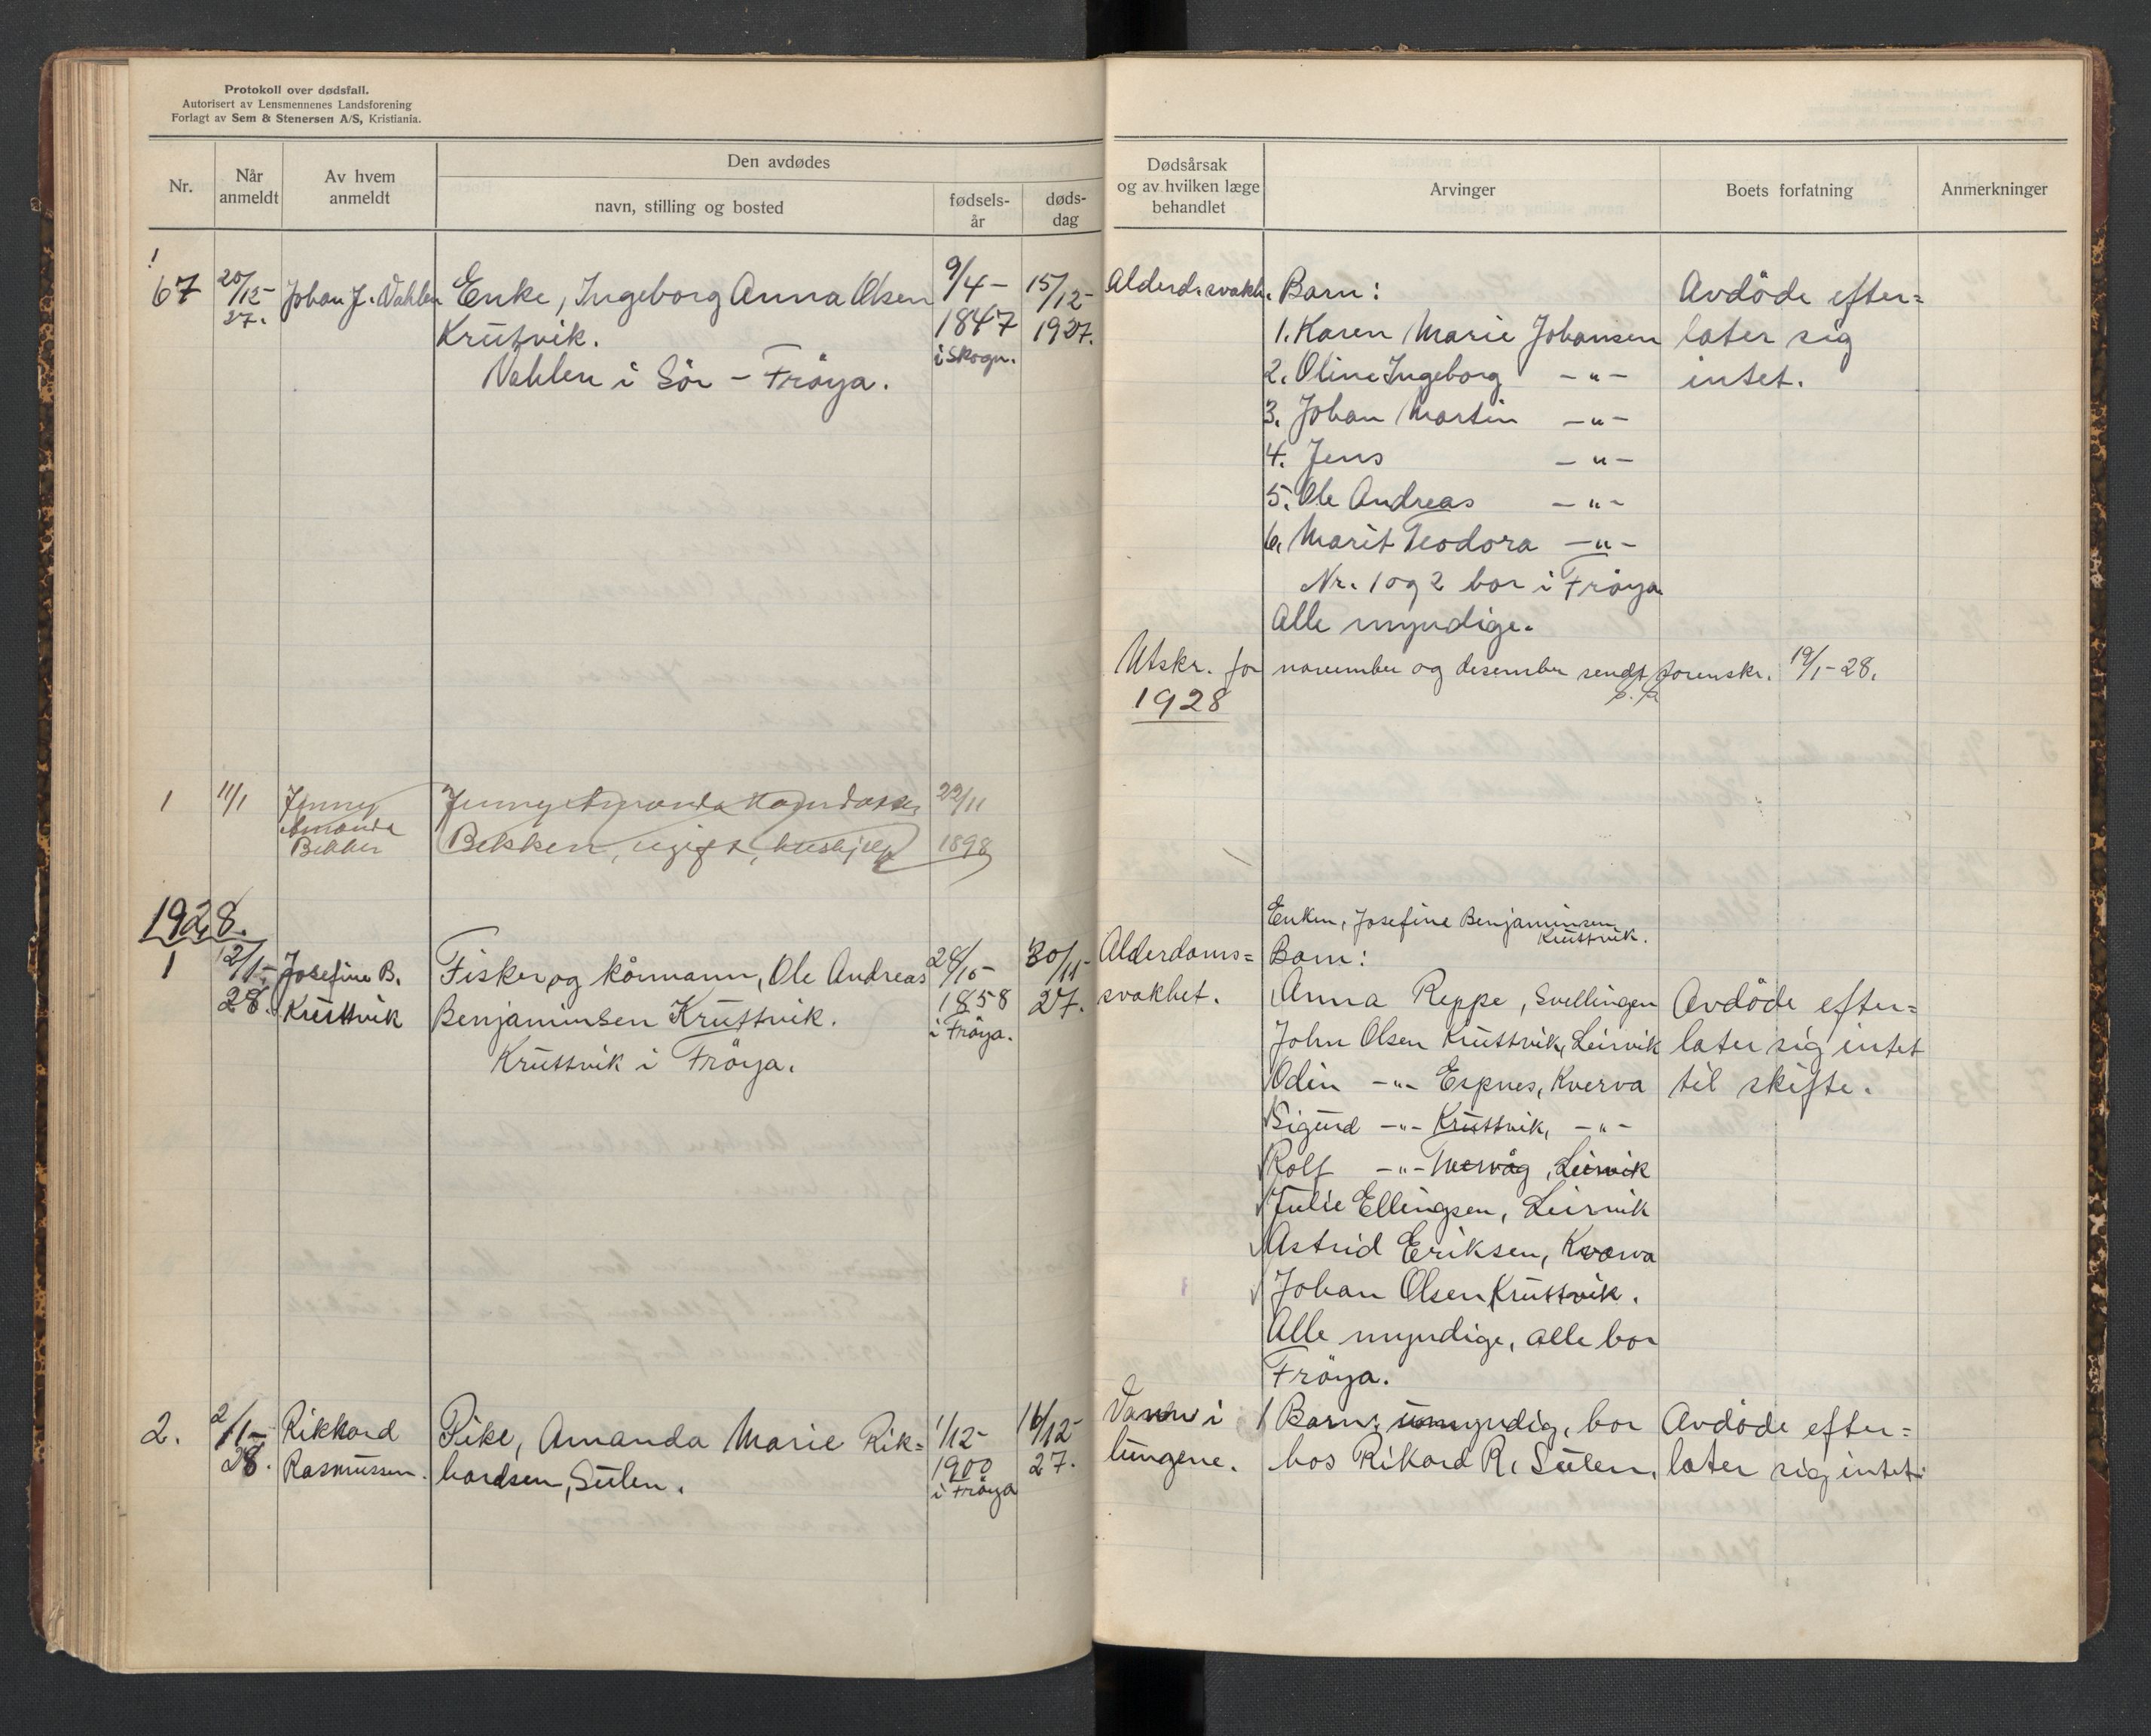 Protokoll over dødsfall.
Autorisert av Lensmennenes Landsforening
Forlagt av Sem & Stenersen A/S, Kristiania.
Nr.
Når anmeldt
Av hvem anmeldt
Den avdødes
navn, stilling og bosted
fødsels-år
døds-dag
Dødsårsak
og av hvilken læge
behandlet
Arvinger
Boets forfatning
Anmerkninger
67
20/12-
27.
Johan J. Vahlen
Enke, Ingeborg Anna Olsen
Krutvik.
Vahlen i Sör - Fröya.
9/4-
1847
i Skogn.
15/12-
1927.
Alderd.svakh.
Barn:
1. Karen Marie Johansen
2. Oline Ingeborg -"-
3. Johan Martin -"-
4. Jens -"-
5. Ole Andreas -"-
6. Marit Teodora -"-
Nr. 1 og 2 bor i Fröya
Alle myndige.
Avdöde efter=
later sig
intet.
Utskr. for november og desember sendt sorenskr. 19/1-28.
1928
1
11/1
Jenny
Amanda
Bekken
Jenny Amanda
Bekken, ugift, hushjelp
22/11
1898
1928.
1
12/1-
28.
Josefine B.
Kruttvik
Fisker og kårmann, Ole Andreas
Benjaminsen Kruttvik.
Kruttvik i Fröya.
24/10-
1858
i Fröya.
30/11-
27.
Alderdoms=
svakhet.
Enken, Josefine Benjaminsen
Kruttvik.
Barn:
Anna Reppe, Svellingen
John Olsen Kruttvik, Leirvik
Odin -"- Espnes, Kverva
Sigurd -"- Kruttvik, -"-
Rolf -"- Nesvåg, Leirvik
Julie Ellingsen, Leirvik
Astrid Eriksen, Kverva
Johan Olsen Kruttvik.
Alle myndige, alle bor
Fröya.
Avdöde efter=
later sig intet
til skifte.
2.
2/1-
28.
Rikkard
Rasmussen.
Pike, Amanda Marie Rik=
hardsen, Sulen.
1/12-
1900
i Fröya
16/12-
27.
Vann i
lungene.
1 Barn, umyndig, bor
hos Rikard R. Sulen.
Avdöde efter=
later sig intet.